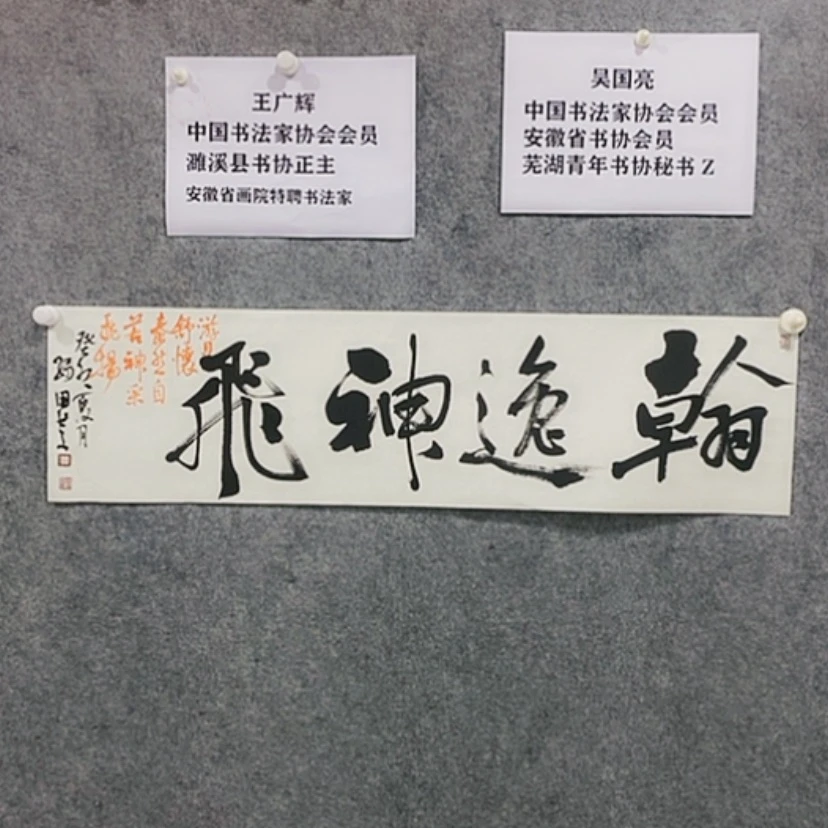 王广辉
中国书法家协会会员
濉溪县书协正主
安徽省画院特聘书法家
吴国亮
中国书法家协会会员
安徽省书协会员
芜湖青年书协秘书 Z
翰逸神飞
舒怀
神采
飞扬
癸卯夏月